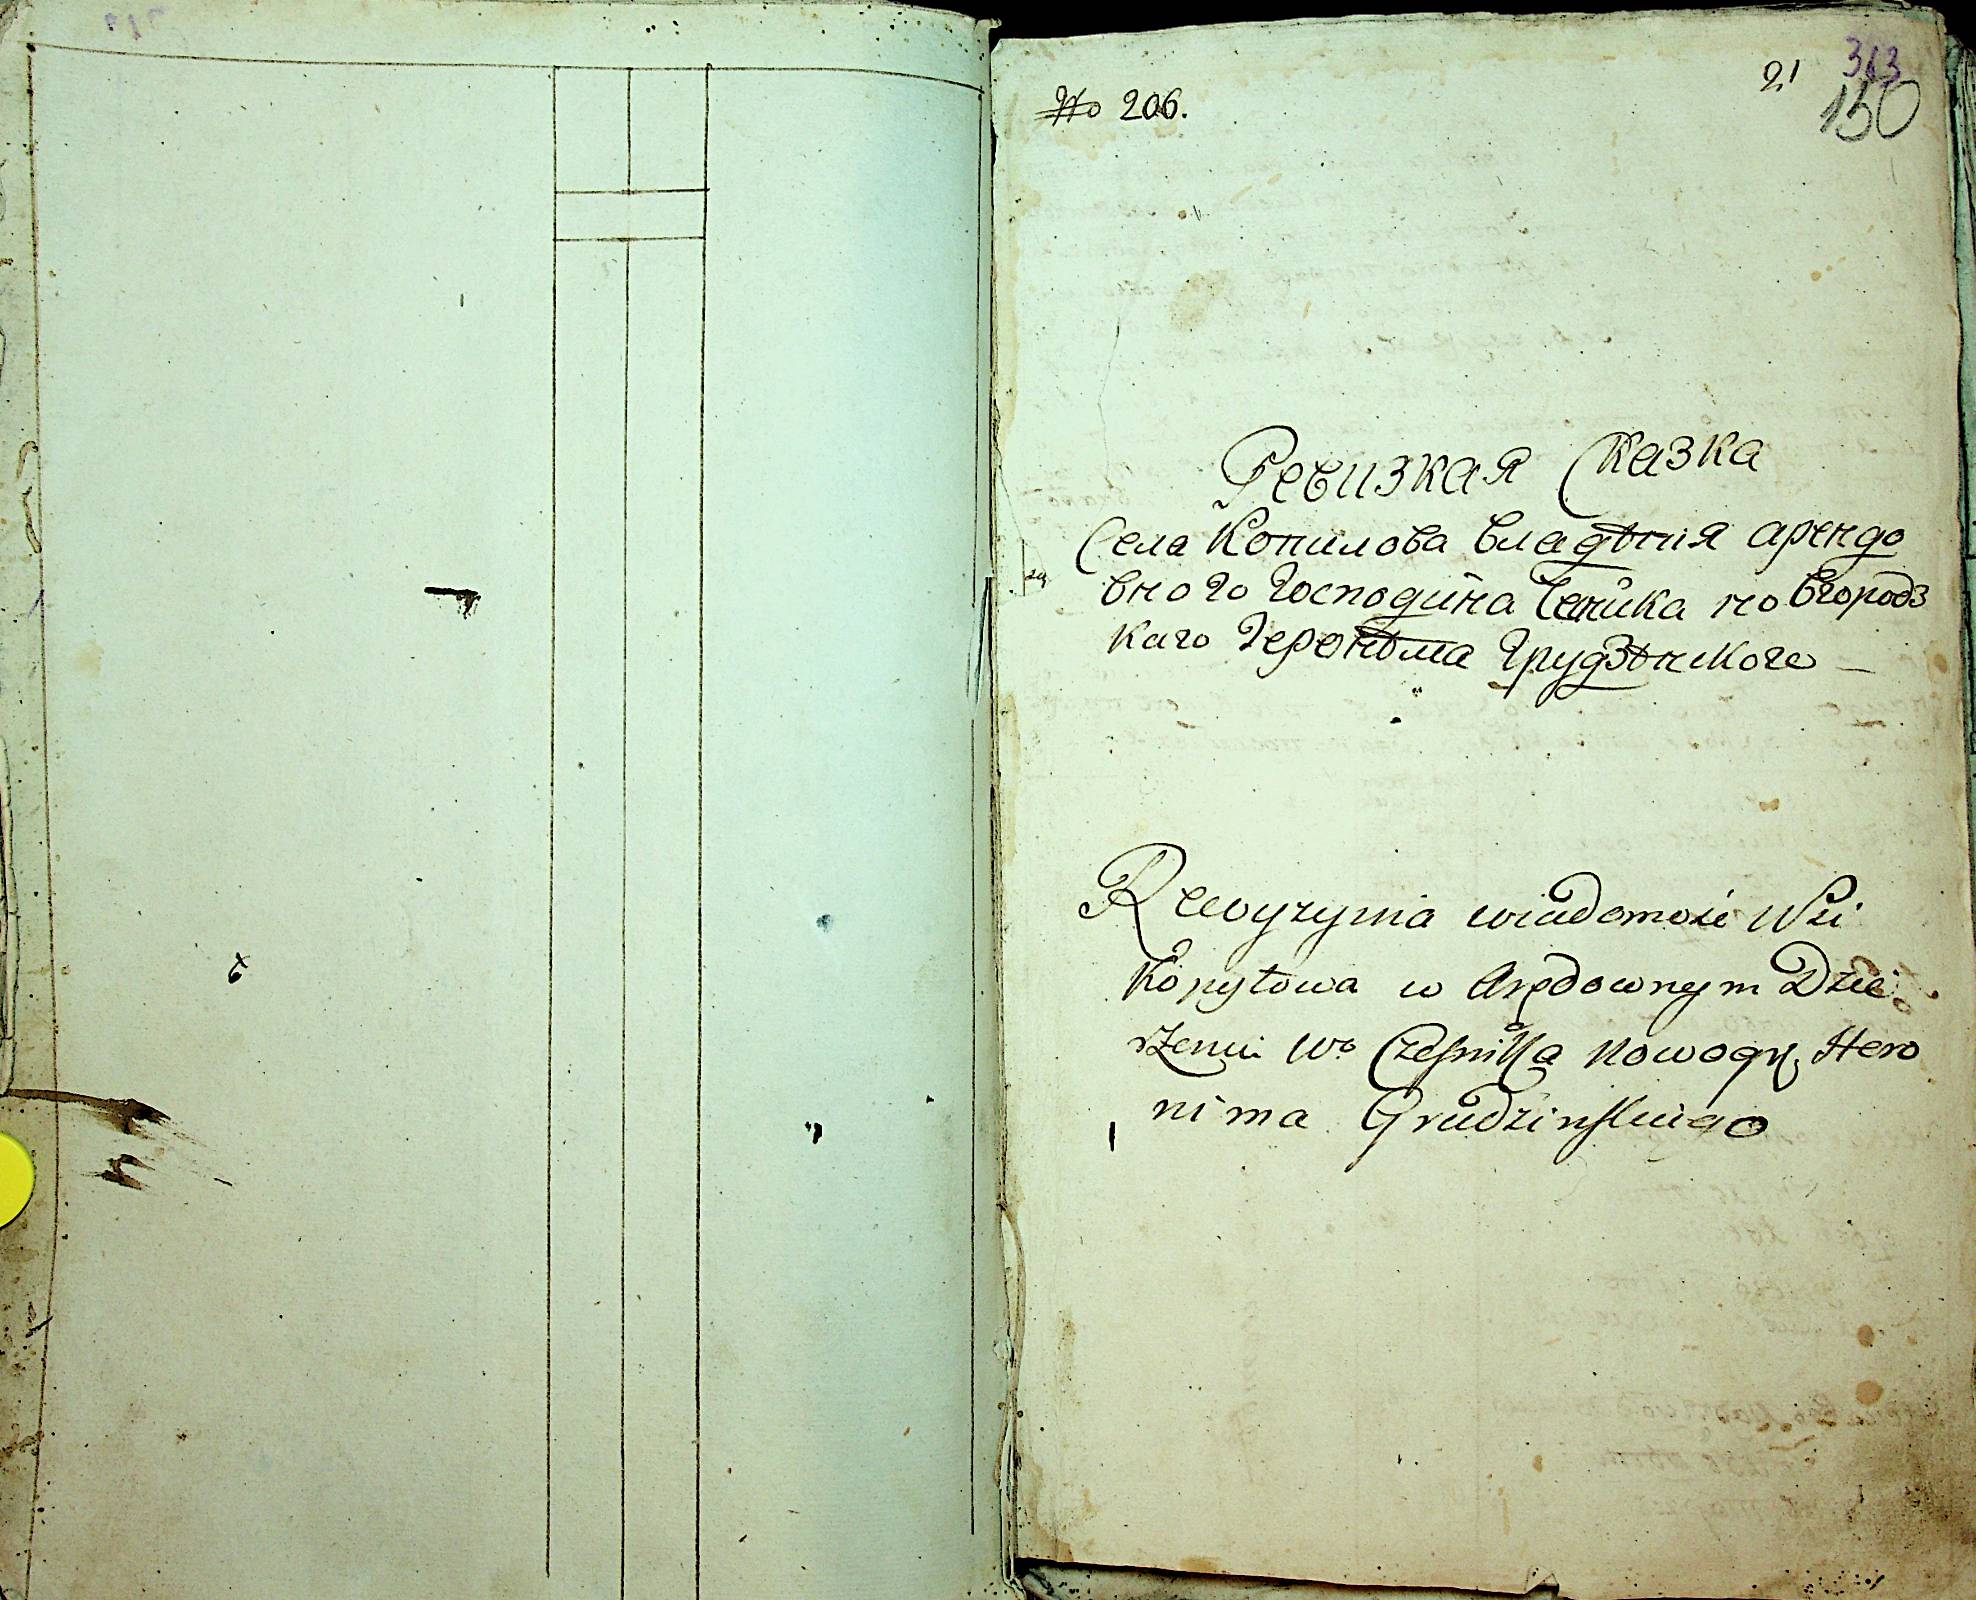 No 206.
21
313
150
Ревизкая Сказка
Села Копилова владѣния арендо
вного Господина Чесника новгородз
каго Геронѣма Грудзѣнского
Rewyzyina wiadomość Wsi
Kopyłowa w Arędownym Dzie
rżeniu Wo Czesnika Nowogr. Hero
nima Grudzinskiego